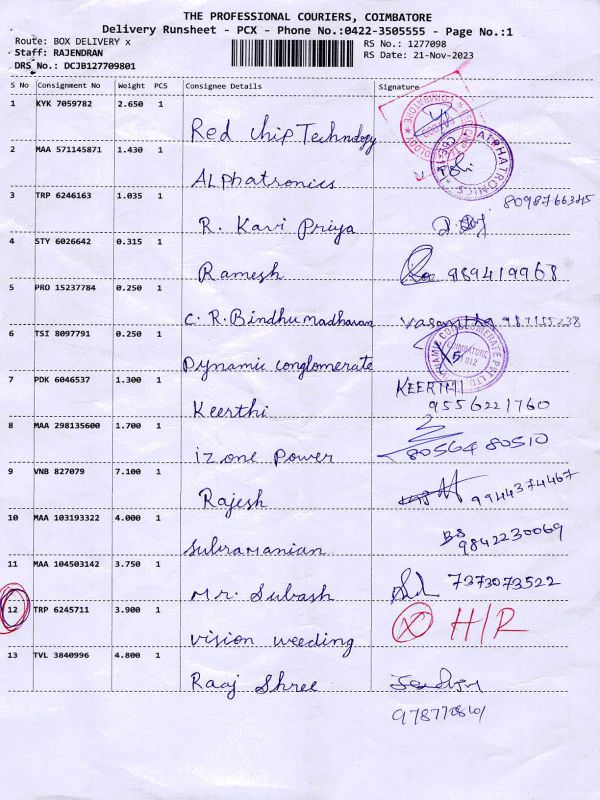 THE PROFESSIONAL COURIERS, COIMBATORE
Delivery Runsheet - PCX - Phone No.:0422-3505555 - Page No.:1
Route: BOX DELIVERY x
Staff: RAJENDRAN
DRS No.: DCJB127709801
RS No.: 1277098
RS Date: 21-Nov-2023
S No Consignment No Weight PCS Consignee Details Signature
1 KYK 7059782 2.650 1
Red chip Technology
2 MAA 571145871 1.430 1
ALPhatronics
ALPHATRONICS
3 TRP 6246163 1.035 1
R. Kavi Priya
8098766345
4 STY 6026642 0.315 1
Ramesh
989419968
5 PRO 15237784 0.250 1
C. R. Bindhu madhavan
6 TSI 8097791 0.250 1
Dynamic conglomerate
7 PDK 6046537 1.300 1
Keerthi
KEERTHI
9556221760
8 MAA 298135600 1.700 1
izone Power
80564 80510
9 VNB 827079 7.100 1
Rajesh
9944374467
10 MAA 103193322 4.000 1
Subramanian
BS
9842230069
11 MAA 104503142 3.750 1
Mr. Subash
7373073522
12 TRP 6245711 3.900 1
vision weeding
X H/R
13 TVL 3840996 4.800 1
Raaj Shree